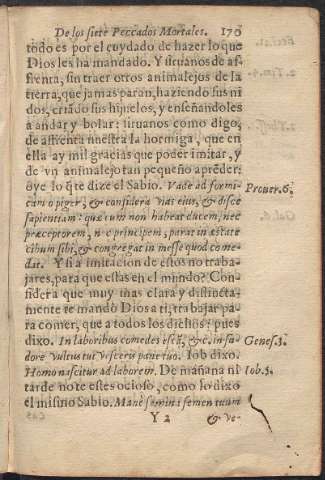 De los siete Peccados Mortales. 170
todo es por el cuydado de hazer lo que
Dios les ha mandado. Y siruanos de af-
frenta, sin traer otros animalejos de la
tierra, que jamas paran, haziendo sus ni
dos, criādo sus hijuelos, y enseñandoles
a andar y bolar: siruanos como digo,
de affrenta nuestra la hormiga, que en
ella ay mil gracias que poder imitar, y
de vn animalejo tan pequeño aprēder:
oye lo q̄ te dize el Sabio. Vade ad formi- Prouer. 6.
cam o piger, & considera vias eius, & disce
sapientiam: quæ cum non habeat ducem, nec
præceptorem, nec principem, parat in æstate
cibum sibi, & congregat in messe quod come-
dat. Y si a imitacion de estos no traba-
jares, para que estas en el mundo? Con-
sidera que muy mas clara y distincta-
mente te mandò Dios a ti, trabajar pa-
ra comer, que a todos los dichos: pues
dixo. In laboribus comedes ex ea, &c. in su- Genes. 3.
dore vultus tui vesceris pane tuo. Iob dixo.
Homo nascitur ad laborem. De mañana ni Iob. 5.
tarde no te estes ocioso, como lo dixo
el mismo Sabio. Manè semina semen tuum
Y 2 & ve-